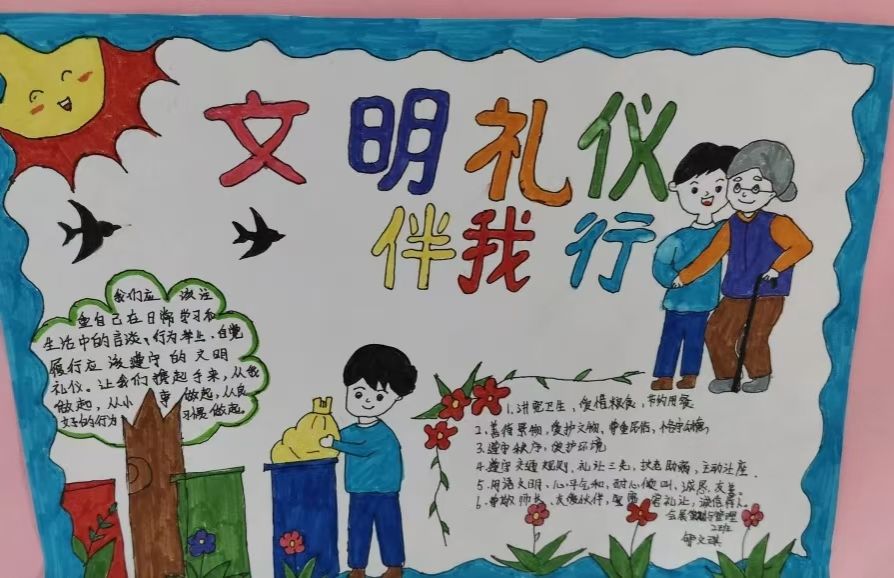 文明礼仪
伴我行
我们应该注
重自己在日常学习和
生活中的言谈、行为举止.自觉
履行应该遵守的文明
礼仪。让我们携起手来,从我
做起,从小事做起,从良
好的行为习惯做起。
1.讲究卫生,爱惜粮食,节约用餐
2.善待景物,爱护文物,尊重民俗,恪守公德;
3.遵守秩序,爱护环境
4.遵守交通规则、礼让三先,扶老助弱,主动让座.
5.用语文明、心平气和,耐心倾听,诚恳、友善。
6.尊敬师长、友爱伙伴,宽容礼让,诚信待人。
会展策划与管理
2班